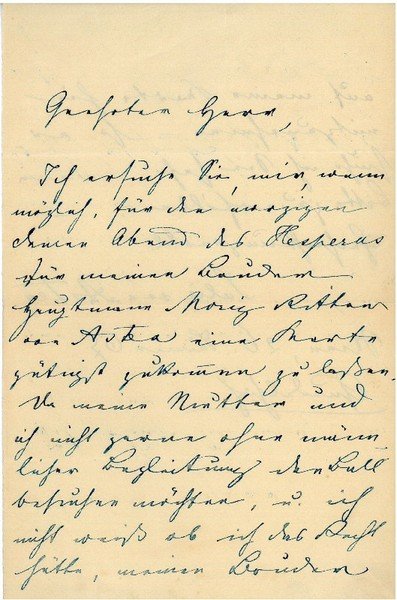 Geehrter Herr,
Ich ersuche Sie, mir, wenn
möglich, für den morgigen
Abend des Hesperus
für meinen Bruder
Hauptmann Moriz Ritter
von eine Karte
gütigst zukommen zu laßen.
Da meine Mutter und
ich nicht gerne ohne männ
licher Begleitung den Ball
besuchen möchten, u. ich
nicht weiß ob ich das Recht
hätte, meinen Bruder